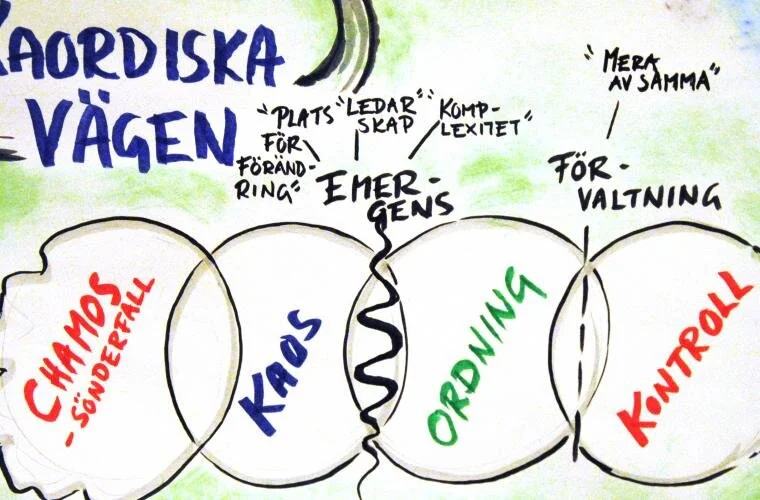 KAORDISKA
VÄGEN
"PLATS
FÖR
FÖRÄND-
RING"
"LEDAR"
SKAP
"KOMP-
LEXITET"
EMER-
GENS
"MERA
AV SAMMA"
FÖR-
VALTNING
CHAMOS
- SÖNDERFALL
KAOS
ORDNING
KONTROLL